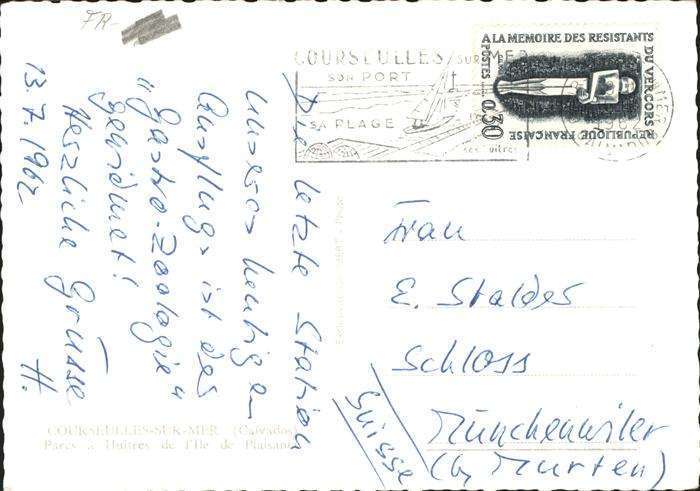 FR-
Die letzte Station
unseres heutigen
Ausflugs ist der
"Gastro-Zoologie"
gewidmet!
Herzliche Grüsse
13.7.1962 H.
COURSEULLES-SUR-MER (Calvados)
Parcs à Huîtres de l'Ile de Plaisance
COURSEULLES SUR MER
SON PORT
SA PLAGE
ses huîtres
A LA MEMOIRE DES RESISTANTS DU VERCORS
POSTES 0,30
REPUBLIQUE FRANCAISE
Frau
E. Stalder
Schloss
Münchenwiler
(by Murten)
Suisse